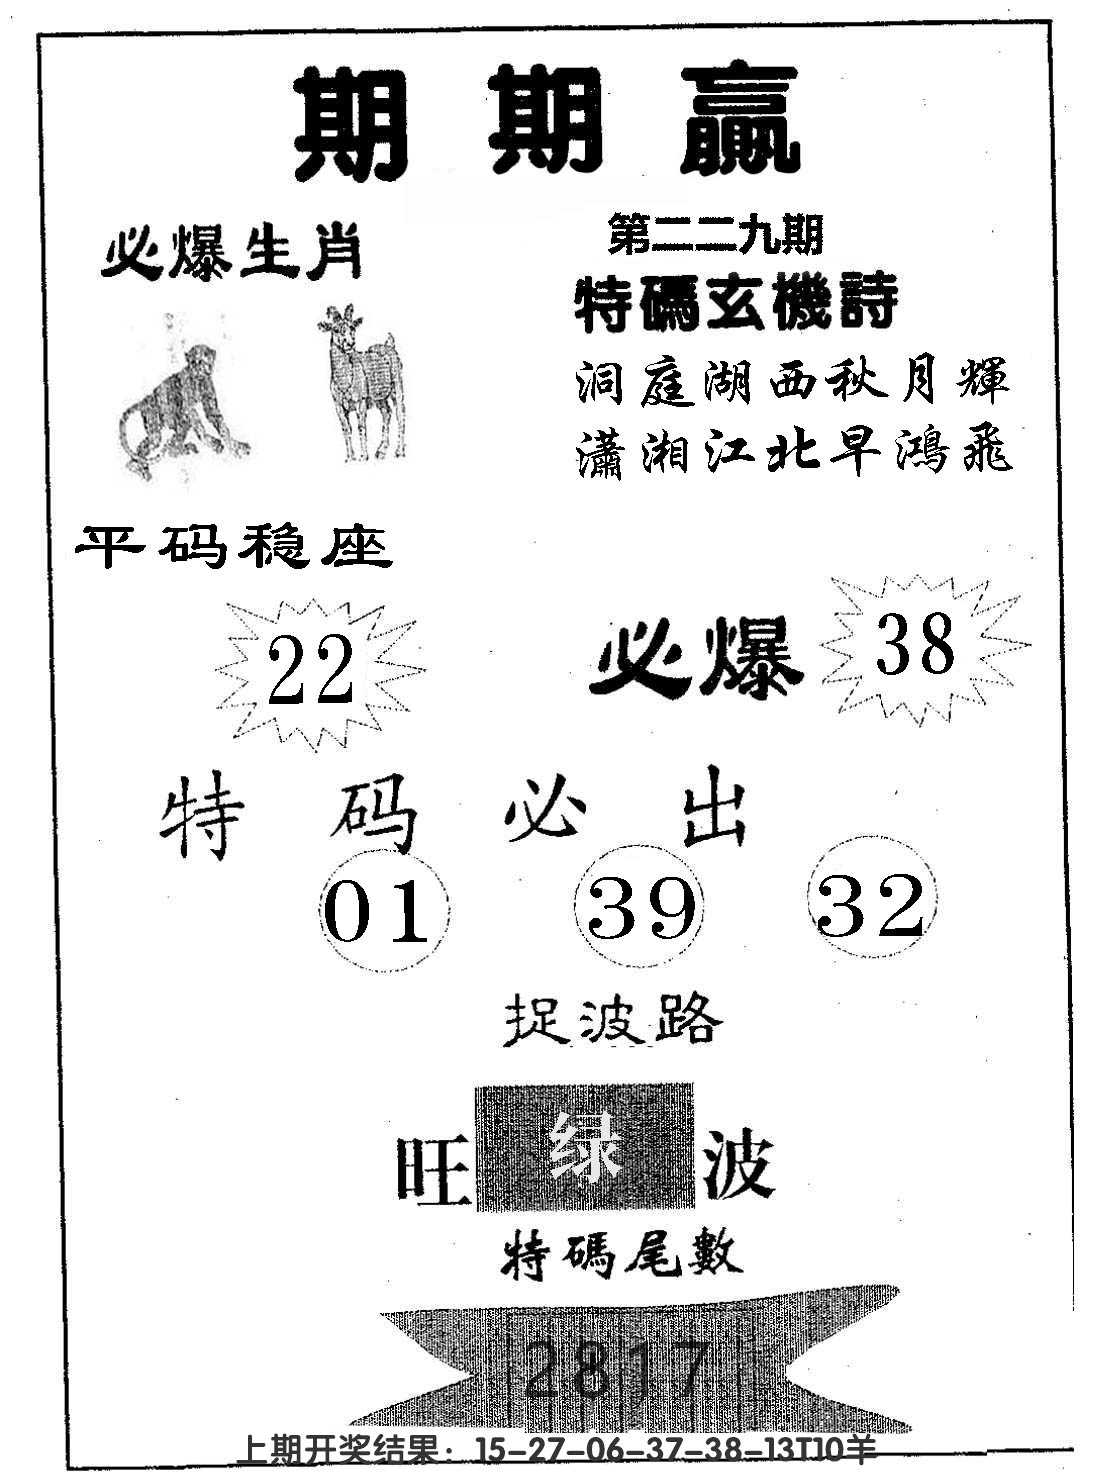 期期赢
必爆生肖
第二二九期
特碼玄機詩
洞庭湖西秋月輝
瀟湘江北早鴻飛
平码稳座
22
必爆 38
特码必出
01 39 32
捉波路
旺 绿 波
特碼尾數
2817
上期开奖结果：15-27-06-37-38-13T10羊